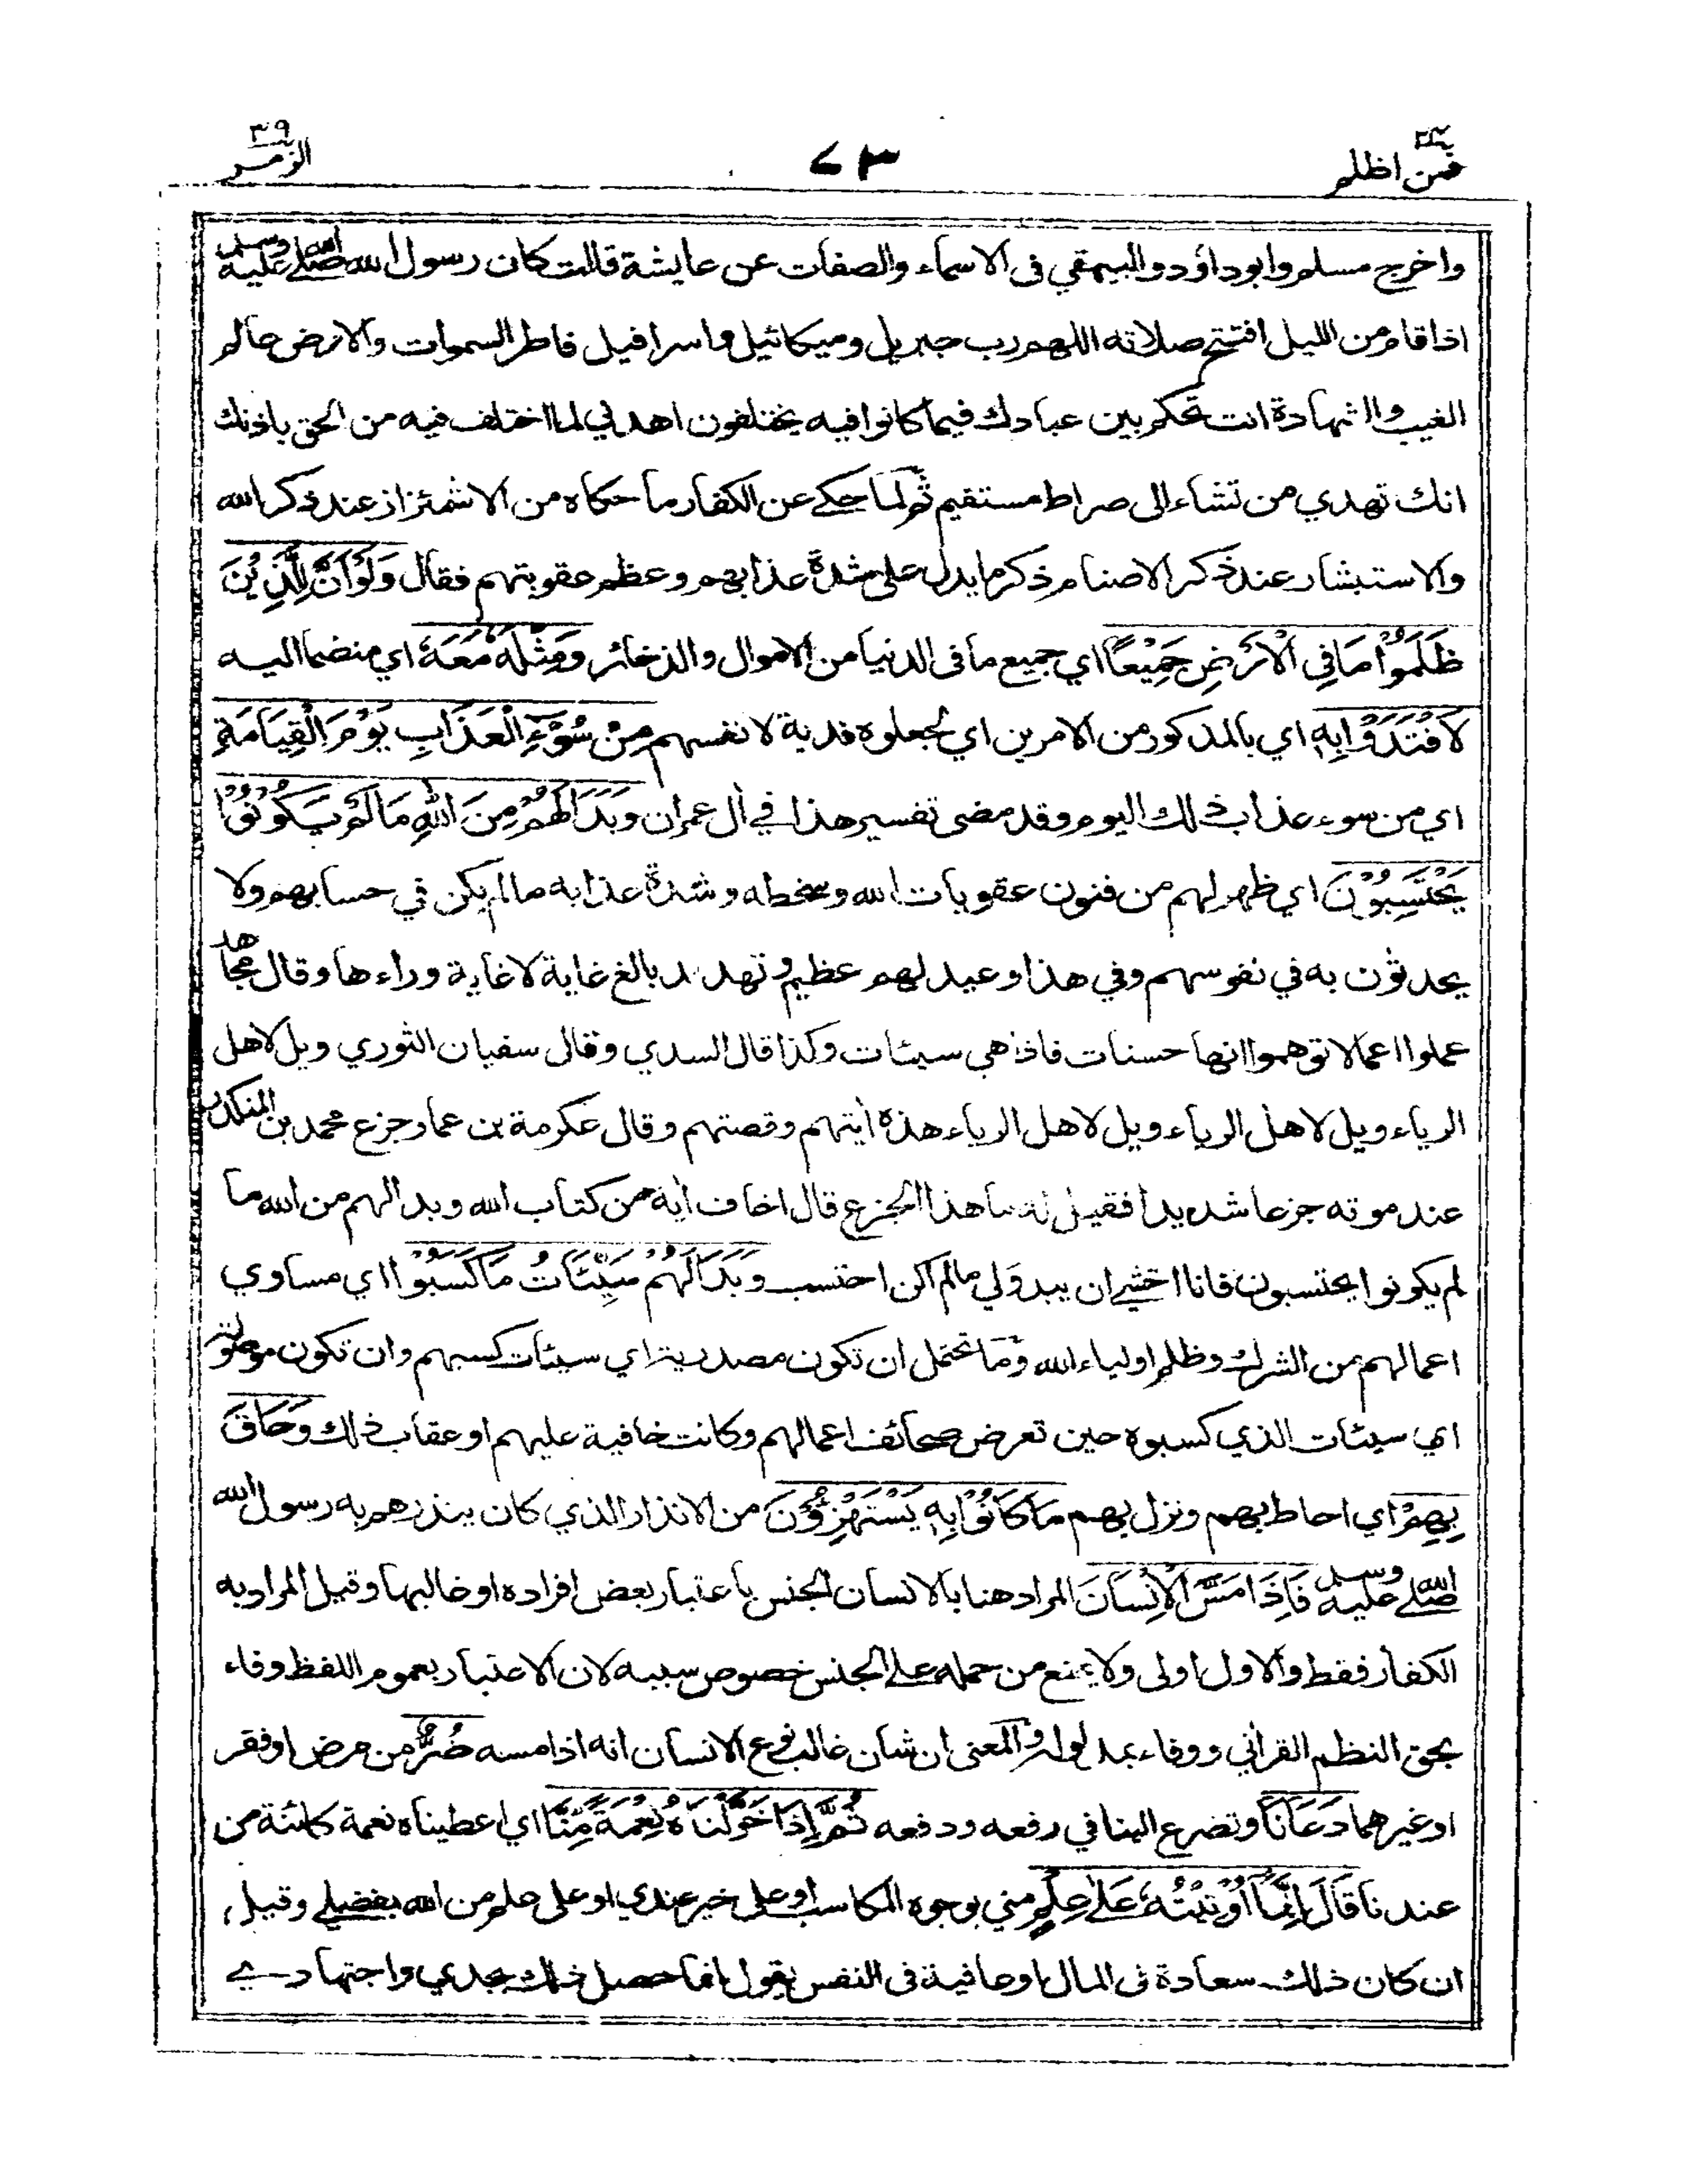 فمن اظلم ٢٤
٧٣
الزمر ٣٩
واخرج مسلم وابو داؤد والبيهقي فى الاسماء والصفات عن عايشة قالت كان رسول الله صلى الله عليه وسلم
اذا قام من الليل افتتح صلاته اللهم رب جبريل وميكائيل واسرافيل فاطر السموات والارض عالم
الغيب والشهادة انت تحكم بين عبادك فيما كانوا فيه يختلفون اهدني لما اختلف فيه من الحق باذنك
انك تهدي من تشاء الى صراط مستقيم ثم لما حكى عن الكفار ما حكاه من الاشمئزاز عند ذكر الله
والاستبشار عند ذكر الاصنام ذكر ما يدل على شدة عذابهم وعظم عقوبتهم فقال وَلَوْ اَنَّ لِلَّذِيْنَ
ظَلَمُوْا مَا فِي الْاَرْضِ جَمِيْعًا اي جميع ما فى الدنيا من الاموال والذخائر وَمِثْلَهٗ مَعَهٗ اي منضما اليه
لَافْتَدَوْا بِهٖ اي بالمذكور من الامرين اي لجعلوه فدية لانفسهم مِنْ سُوْٓءِ الْعَذَابِ يَوْمَ الْقِيَامَةِ
اي من سوء عذاب ذلك اليوم وقد مضى تفسير هذا في اٰل عمران وَبَدَا لَهُمْ مِنَ اللّٰهِ مَا لَمْ يَكُوْنُوْا
يَحْتَسِبُوْنَ اي ظهر لهم من فنون عقوبات الله وسخطه وشدة عذابه ما لم يكن في حسابهم ولا
يحدثون به في نفوسهم وفي هذا وعيد لهم عظيم وتهديد بالغ غاية لا غاية وراءها وقال مجاهد
عملوا اعمالا توهموا انها حسنات فاذا هي سيئات وكذا قال السدي وقال سفيان الثوري ويل لاهل
الرياء ويل لاهل الرياء ويل لاهل الرياء هذه اٰيتهم وقصتهم وقال عكرمة بن عمار جزع محمد بن المنكدر
عند موته جزعا شديدا فقيل له ما هذا الجزع قال اخاف اٰية من كتاب الله وبدا لهم من الله ما
لم يكونوا يحتسبون فانا اخشى ان يبدو لي ما لم اكن احتسب وَبَدَا لَهُمْ سَيِّئَاتُ مَا كَسَبُوْا اي مساوي
اعمالهم من الشرك وظلم اولياء الله وما تحتمل ان تكون مصدرية اي سيئات كسبهم وان تكون موصولة
اي سيئات الذي كسبوه حين تعرض صحائف اعمالهم وكانت خافية عليهم او عقاب ذلك وَحَاقَ
بِهِمْ اي احاط بهم ونزل بهم مَا كَانُوْا بِهٖ يَسْتَهْزِؤُنَ من الانذار الذي كان ينذرهم به رسول الله
صلى الله عليه وسلم فَاِذَا مَسَّ الْاِنْسَانَ المراد هنا بالانسان الجنس باعتبار بعض افراده او غالبها وقيل المراد به
الكفار فقط والاول اولى ولا يمنع من حمله على الجنس خصوص سببه لان الاعتبار بعموم اللفظ وفاء
بحق النظم القراٰني ووفاء بمدلوله والمعنى ان شان غالب نوع الانسان انه اذا مسه ضُرٌّ من مرض او فقر
او غيرهما دَعَانَا وتضرع الينا في رفعه ودفعه ثُمَّ اِذَا خَوَّلْنَاهُ نِعْمَةً مِّنَّا اي اعطيناه نعمة كائنة من
عندنا قَالَ اِنَّمَا اُوْتِيْتُهٗ عَلٰى عِلْمٍ مني بوجوه المكاسب او على خير عندي او على علم من الله بفضلي وقيل
ان كان ذلك سعادة فى المال او عافية فى النفس يقول انما حصل ذلك بجدي واجتهادي